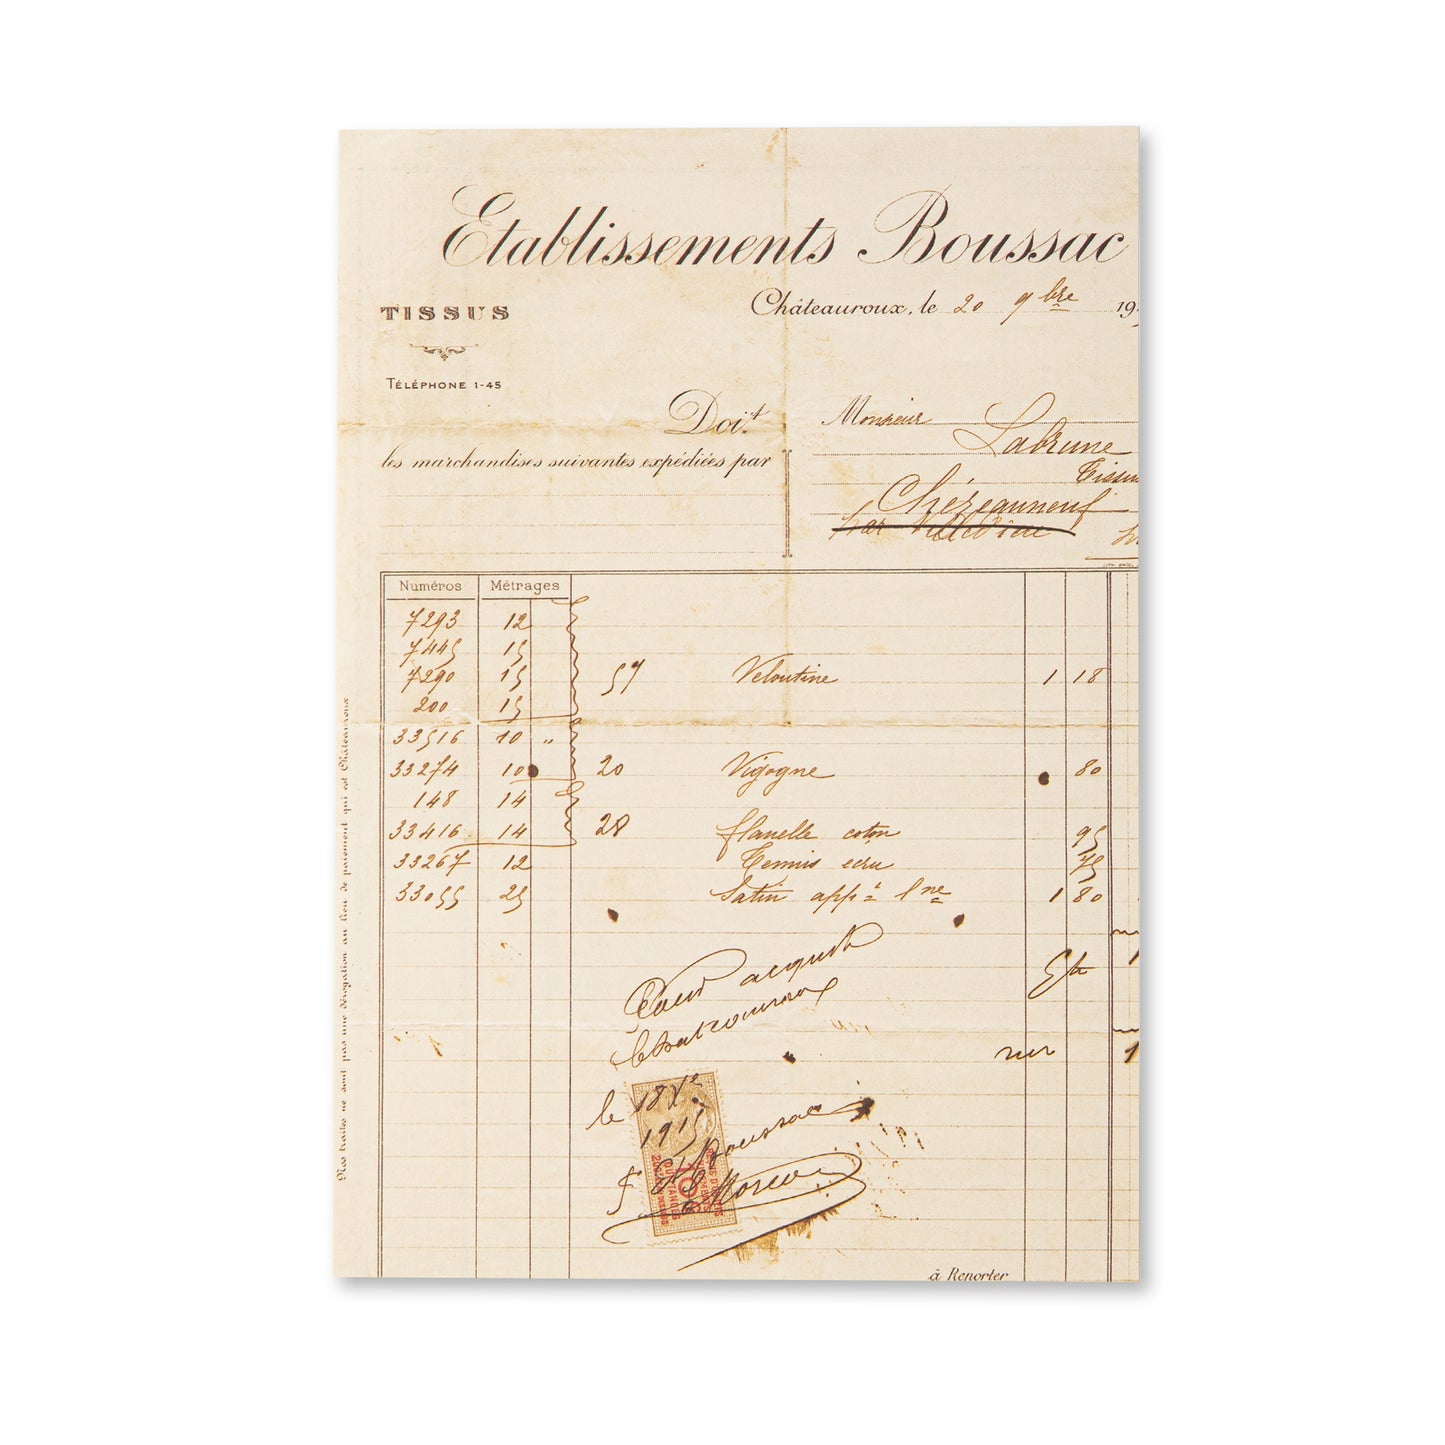 Etablissements Boussac
Châteauroux, le 20 9bre 19
TISSUS
TÉLÉPHONE 1-45
Doit
Monsieur
Labrune
les marchandises suivantes expédiées par
Tissus
Chézeauneuf
par
Numéros Métrages
7293 12
7445 15
7290 15 57 Veloutine 1 18
200 15
33516 10 "
33274 10 20 Vigogne 80
148 14
33416 14 28 flanelle coton 95
33267 12 Tennis ecru 75
33055 25 Satin appt 1 80
Pour acquit
Chateauroux
le 18 Xe
1915
Boussac
à Reporter
Nos traites ne sont pas une dérogation au lieu de paiement qui est Châteauroux